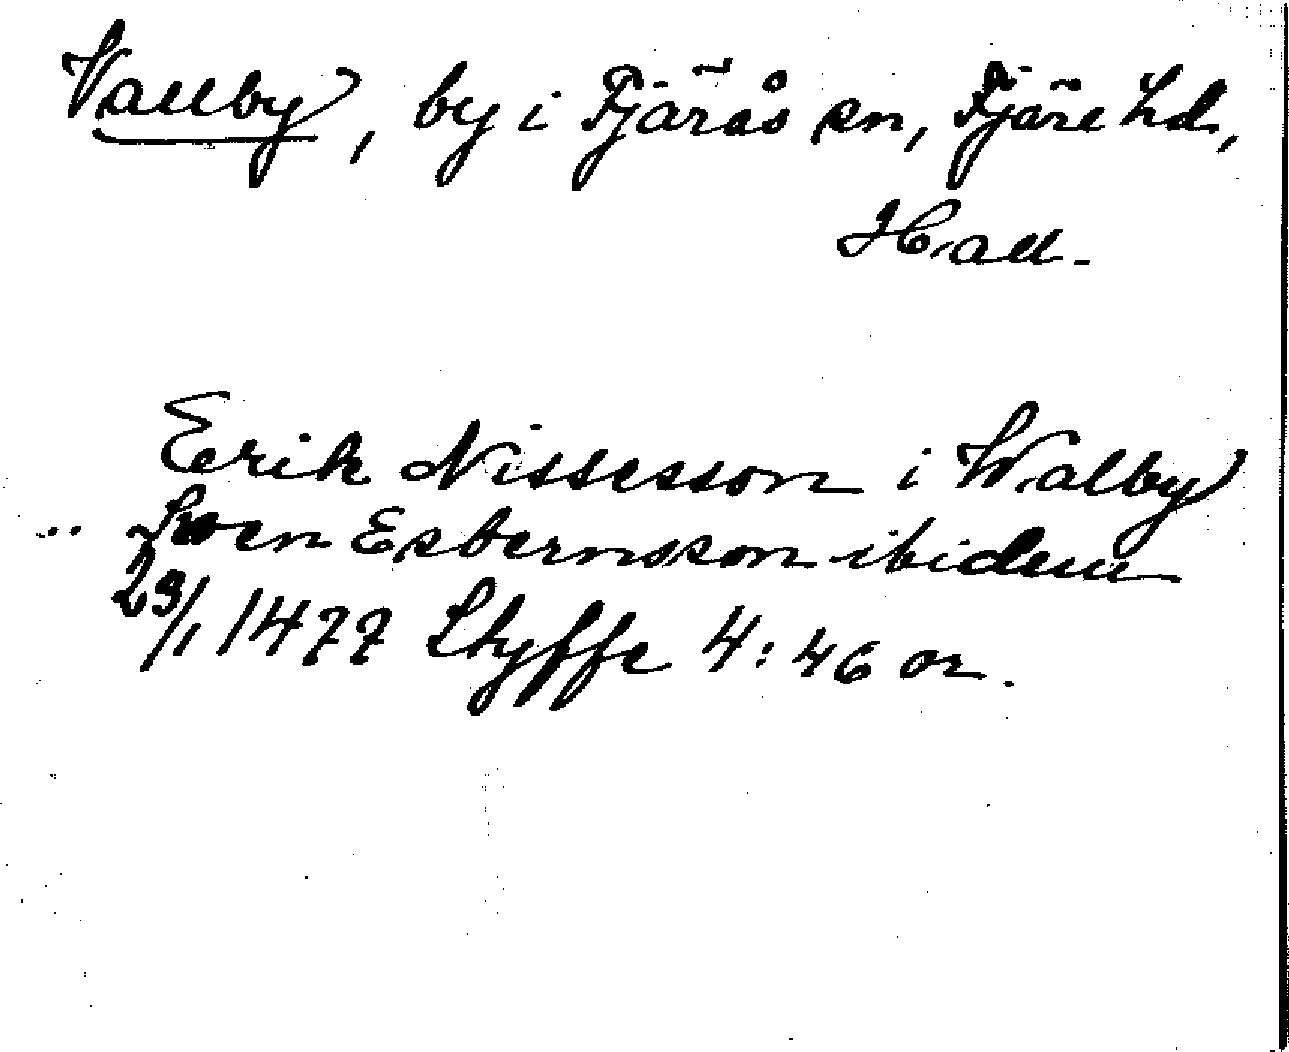 Vallby, by i Fjärås sn, Fjäre hd,
Hall.
Erik Nissesson i Walby
.. Swen Esbernsson ibidem
29/1 1477 Styffe 4:46 or.